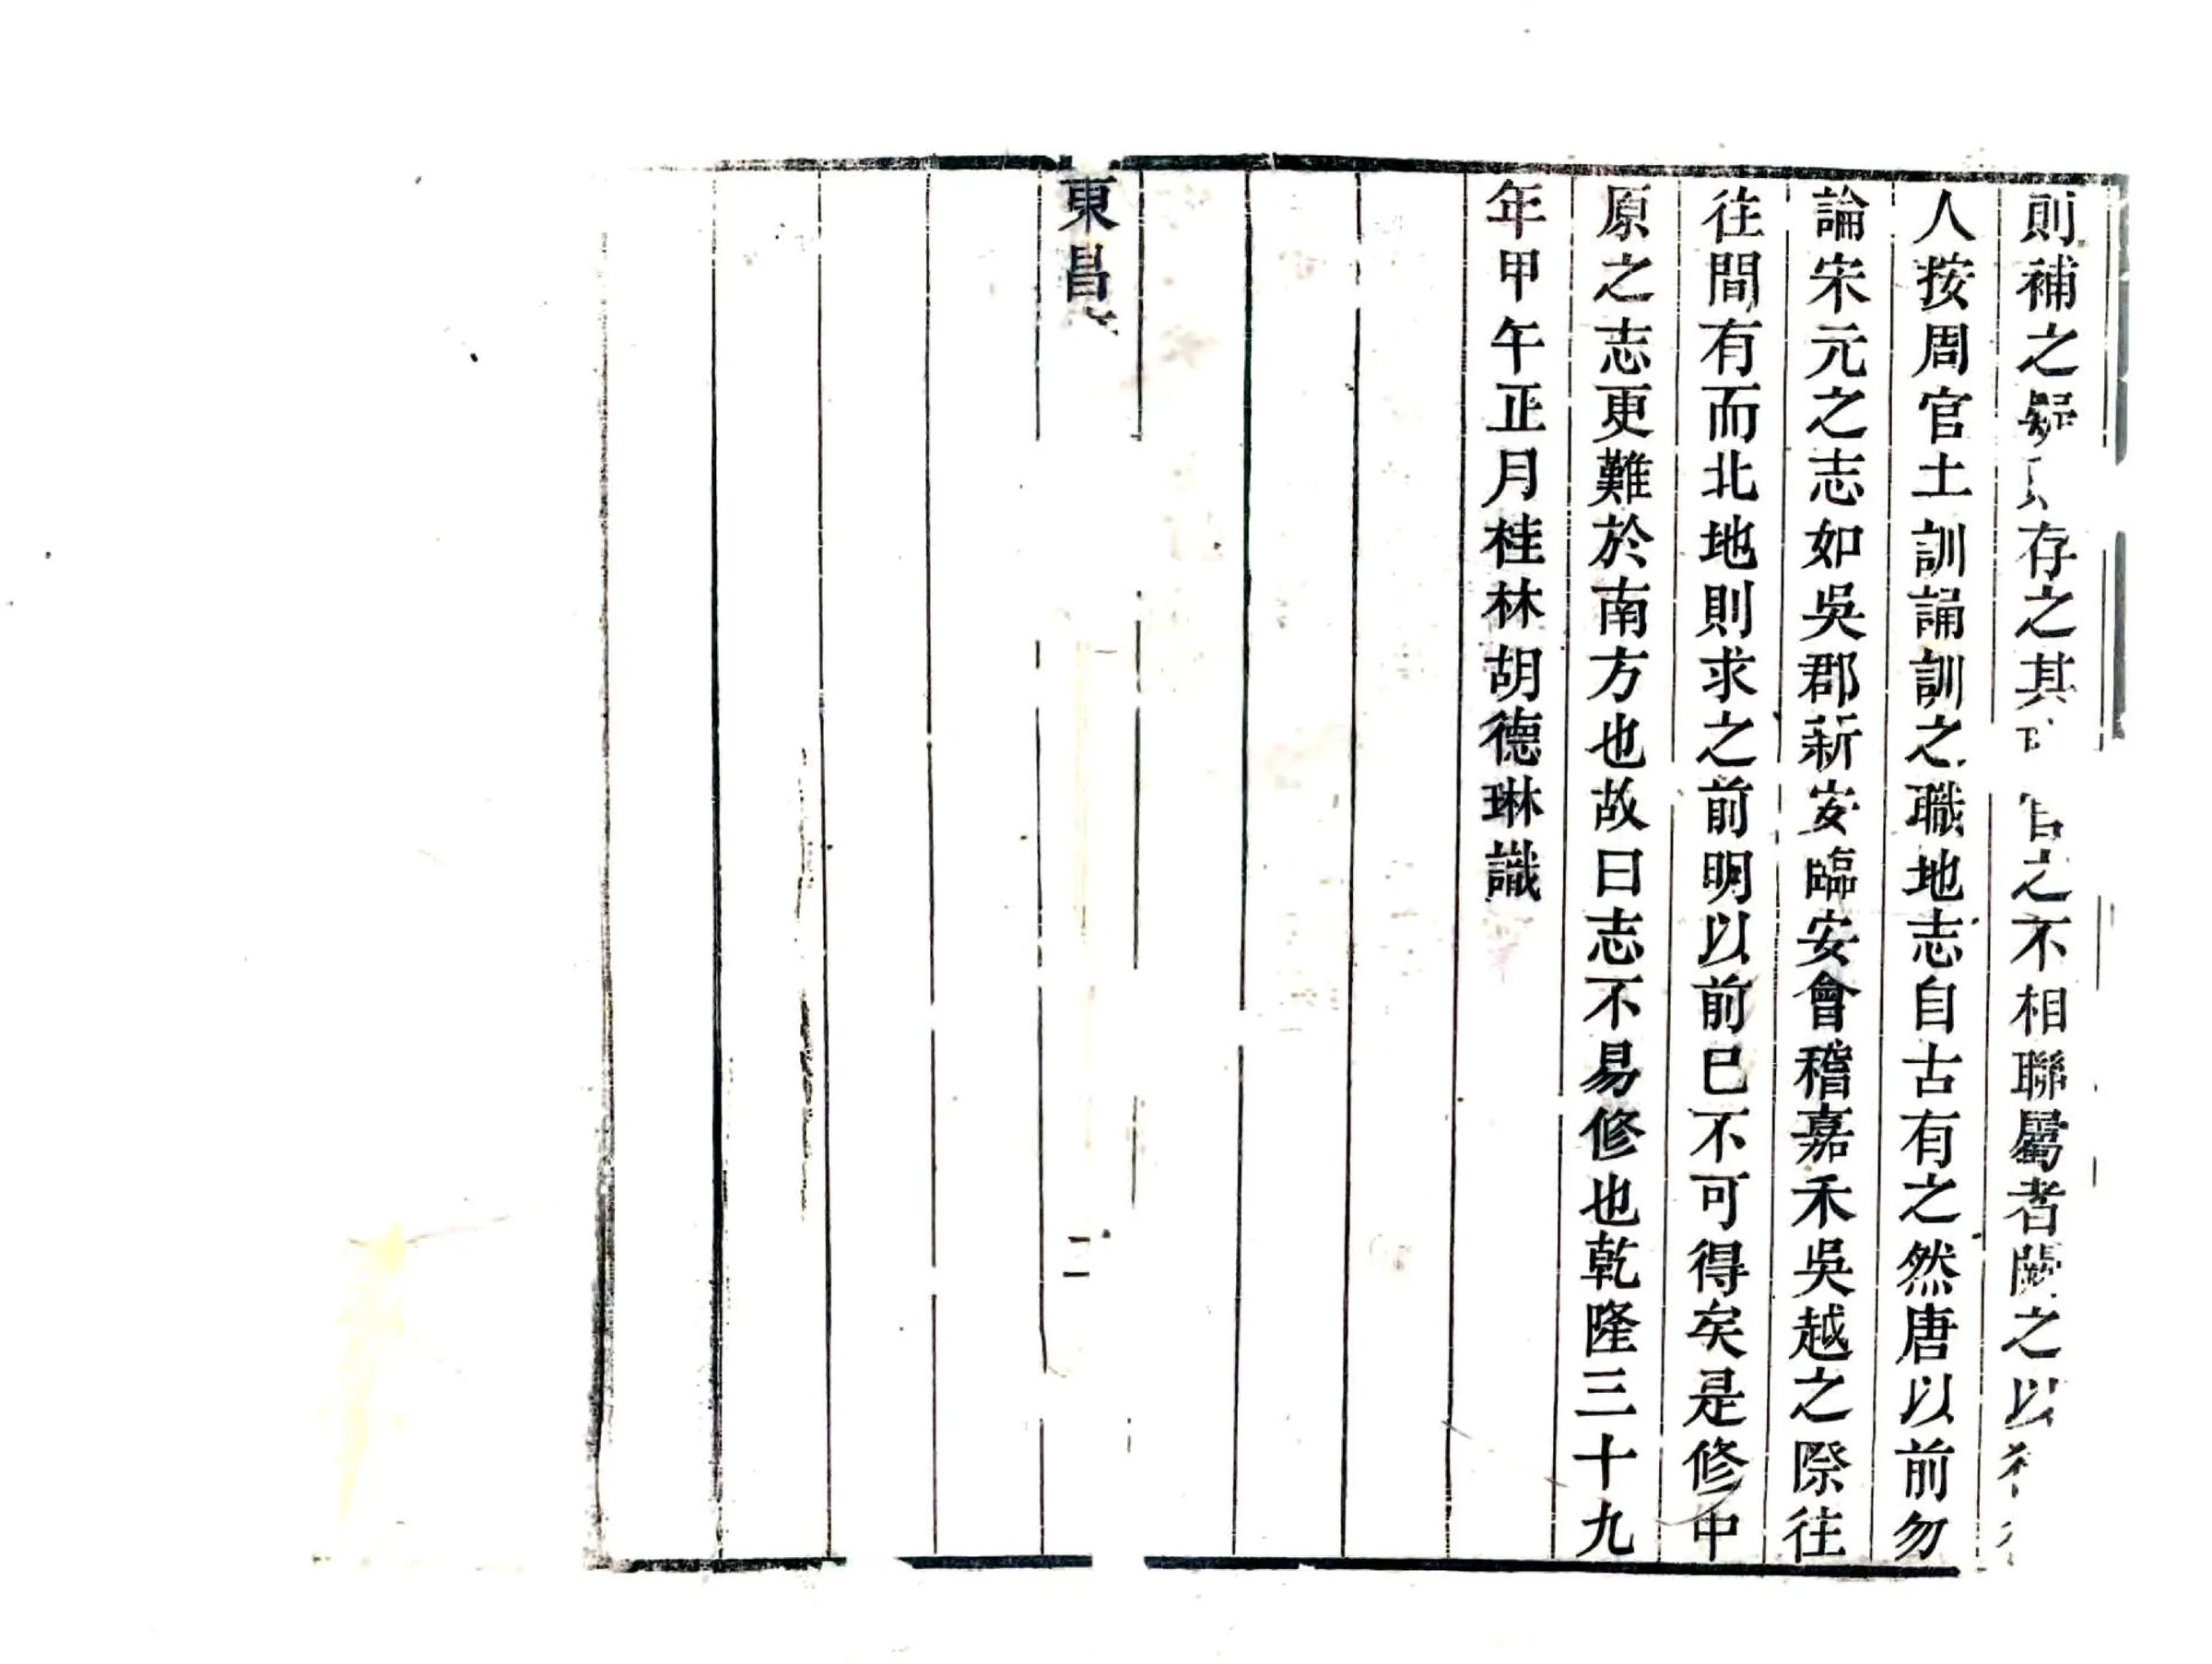 則補之疑則存之其 官之不相聯屬者闕之以
人按周官土訓誦訓之職地志自古有之然唐以前勿
論宋元之志如吳郡新安臨安會稽嘉禾吳越之際往
往間有而北地則求之前明以前已不可得矣是修中
原之志更難於南方也故曰志不易修也乾隆三十九
年甲午正月桂林胡德琳識
東昌
二